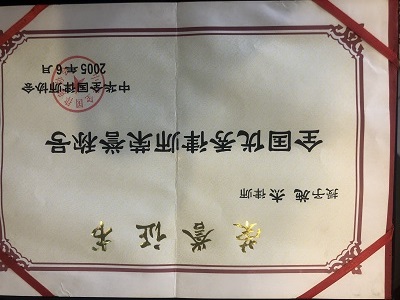 荣誉证书
授予 施 杰 律师
全国优秀律师荣誉称号
中华全国律师协会
2005年6月